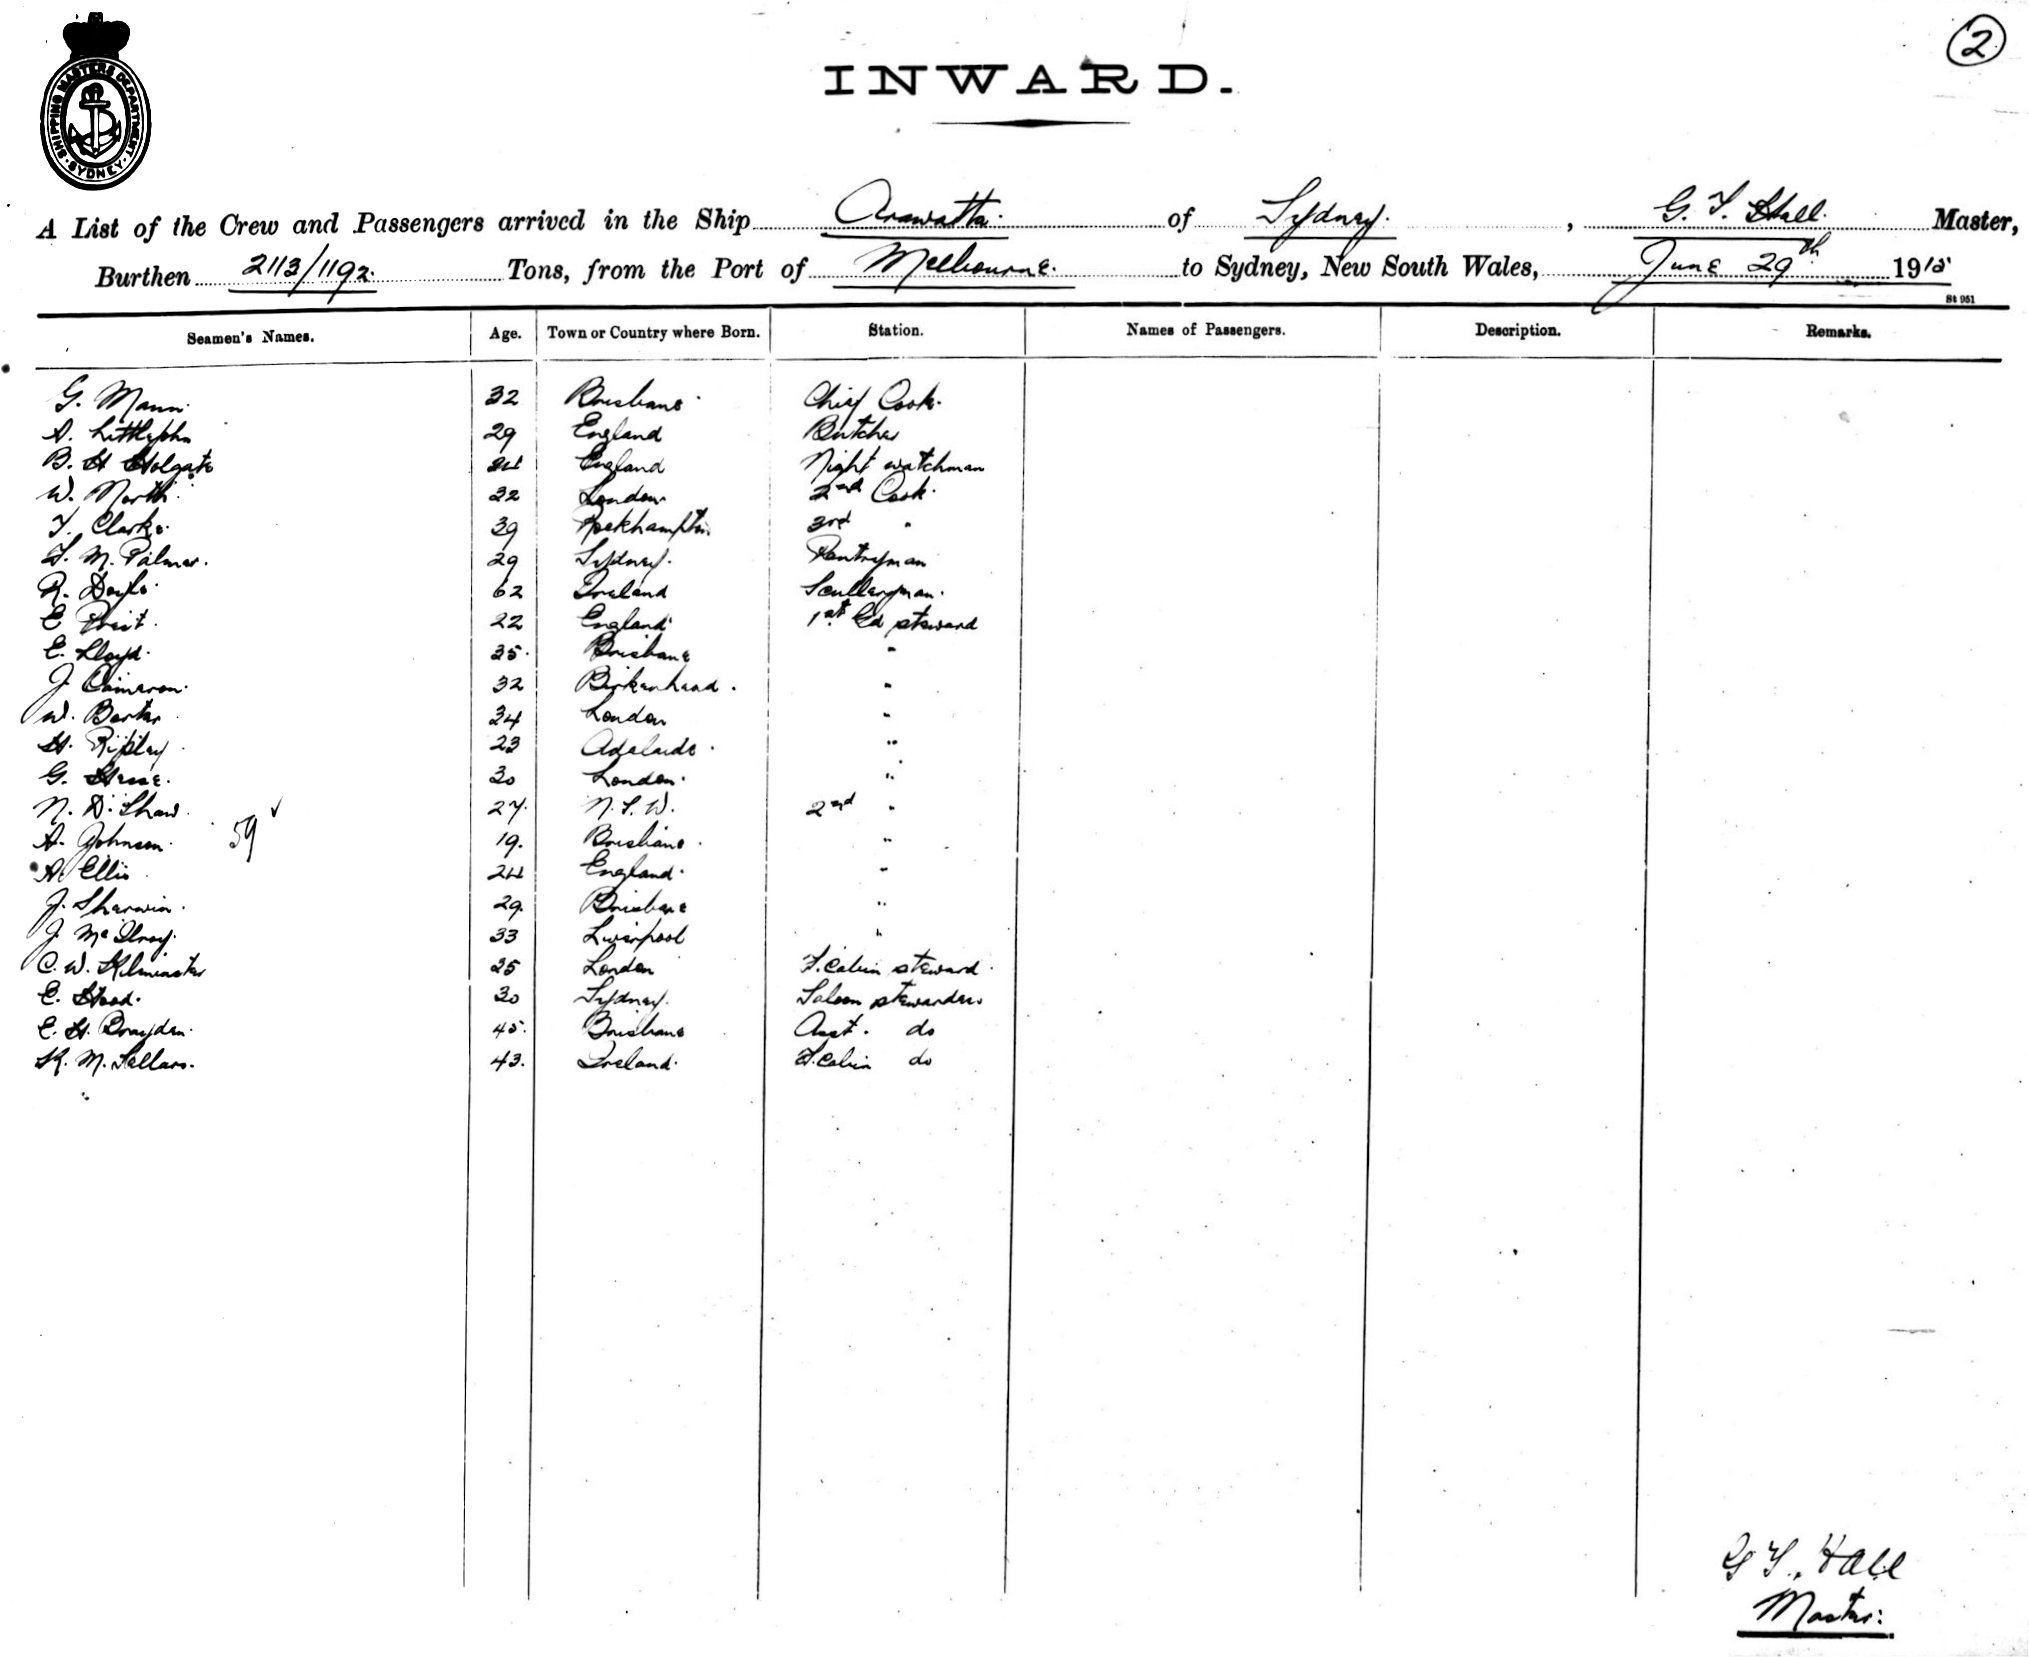 2
SHIPPING MASTERS DEPARTMENT · SYDNEY ·
INWARD.
A List of the Crew and Passengers arrived in the Ship Arawatta of Sydney, G. T. Hall Master,
Burthen 2113/1192 Tons, from the Port of Melbourne to Sydney, New South Wales, June 29th 1915
St 951
Seamen's Names. Age. Town or Country where Born. Station. Names of Passengers. Description. Remarks.
G. Mann 32 Brisbane Chief Cook
A. Littlejohn 29 England Butcher
B. H Holgate 24 England Night watchman
W. North 32 London 2nd Cook
T. Clarke 39 Rockhampton 3rd "
F. M. Palmer 29 Sydney Pantryman
R. Doyle 62 Ireland Sculleryman
E 22 England 1st steward
E. Lloyd 35 Brisbane "
J Cameron 32 Birkenhead "
W. Barter 34 London "
H. Ripley 23 Adelaide "
G. Hesse 30 London "
N. D. Shaw 27 N.S.W. 2nd "
A. Johnson 59 19 Brisbane "
A. Ellis 24 England "
J. Sherwin 29 Brisbane "
J McIlroy 33 Liverpool "
C. W. Kilminster 25 London F. Cabin steward
E. Hood 30 Sydney Saloon stewardess
E. H. Brayden 45 Brisbane Asst. do
K. M. Sellars 43 Ireland F. Cabin do
G T. Hall
Master